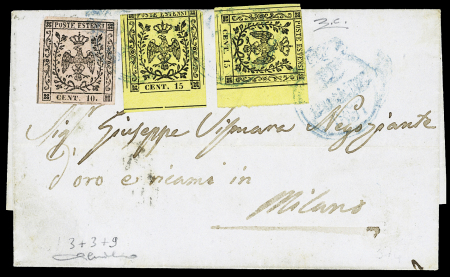 3.c.
POSTE ESTENSI
CENT. 10.
POSTE ESTENSI
CENT. 15
POSTE ESTENSI
CENT. 15
Sig. Giuseppe Vismara Negoziante
d'oro e ricamo in
Milano
3+3+9